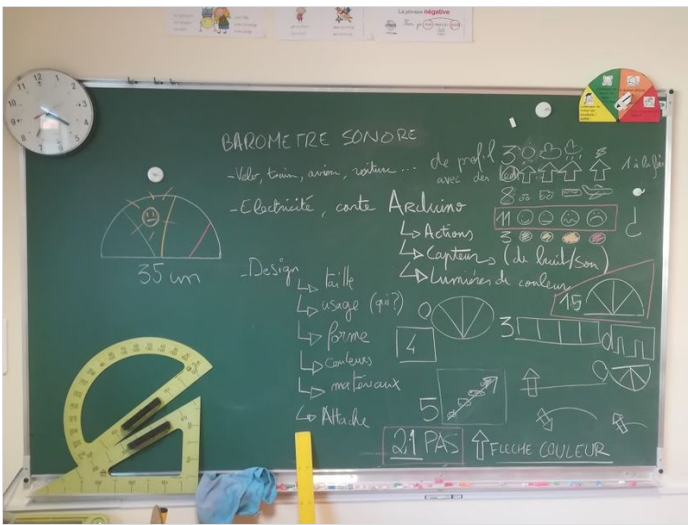 La phrase négative
BAROMETRE SONORE
- Velo, train, avion, voiture ... de profil
avec des
3
1 à la fois
8
- Electricité, carte Arduino
11
↳ Actions
3
↳ Capteurs (de bruit/son)
↳ Lumières de couleur
35 cm
- Design
↳ taille
15
↳ usage (qui?)
0
3
↳ forme
4
0
↳ Couleurs
0
↳ matériaux
5
↳ Attache
21 PAS
FLECHE COULEUR
12
11
10
9
8
7
6
5
4
3
2
1